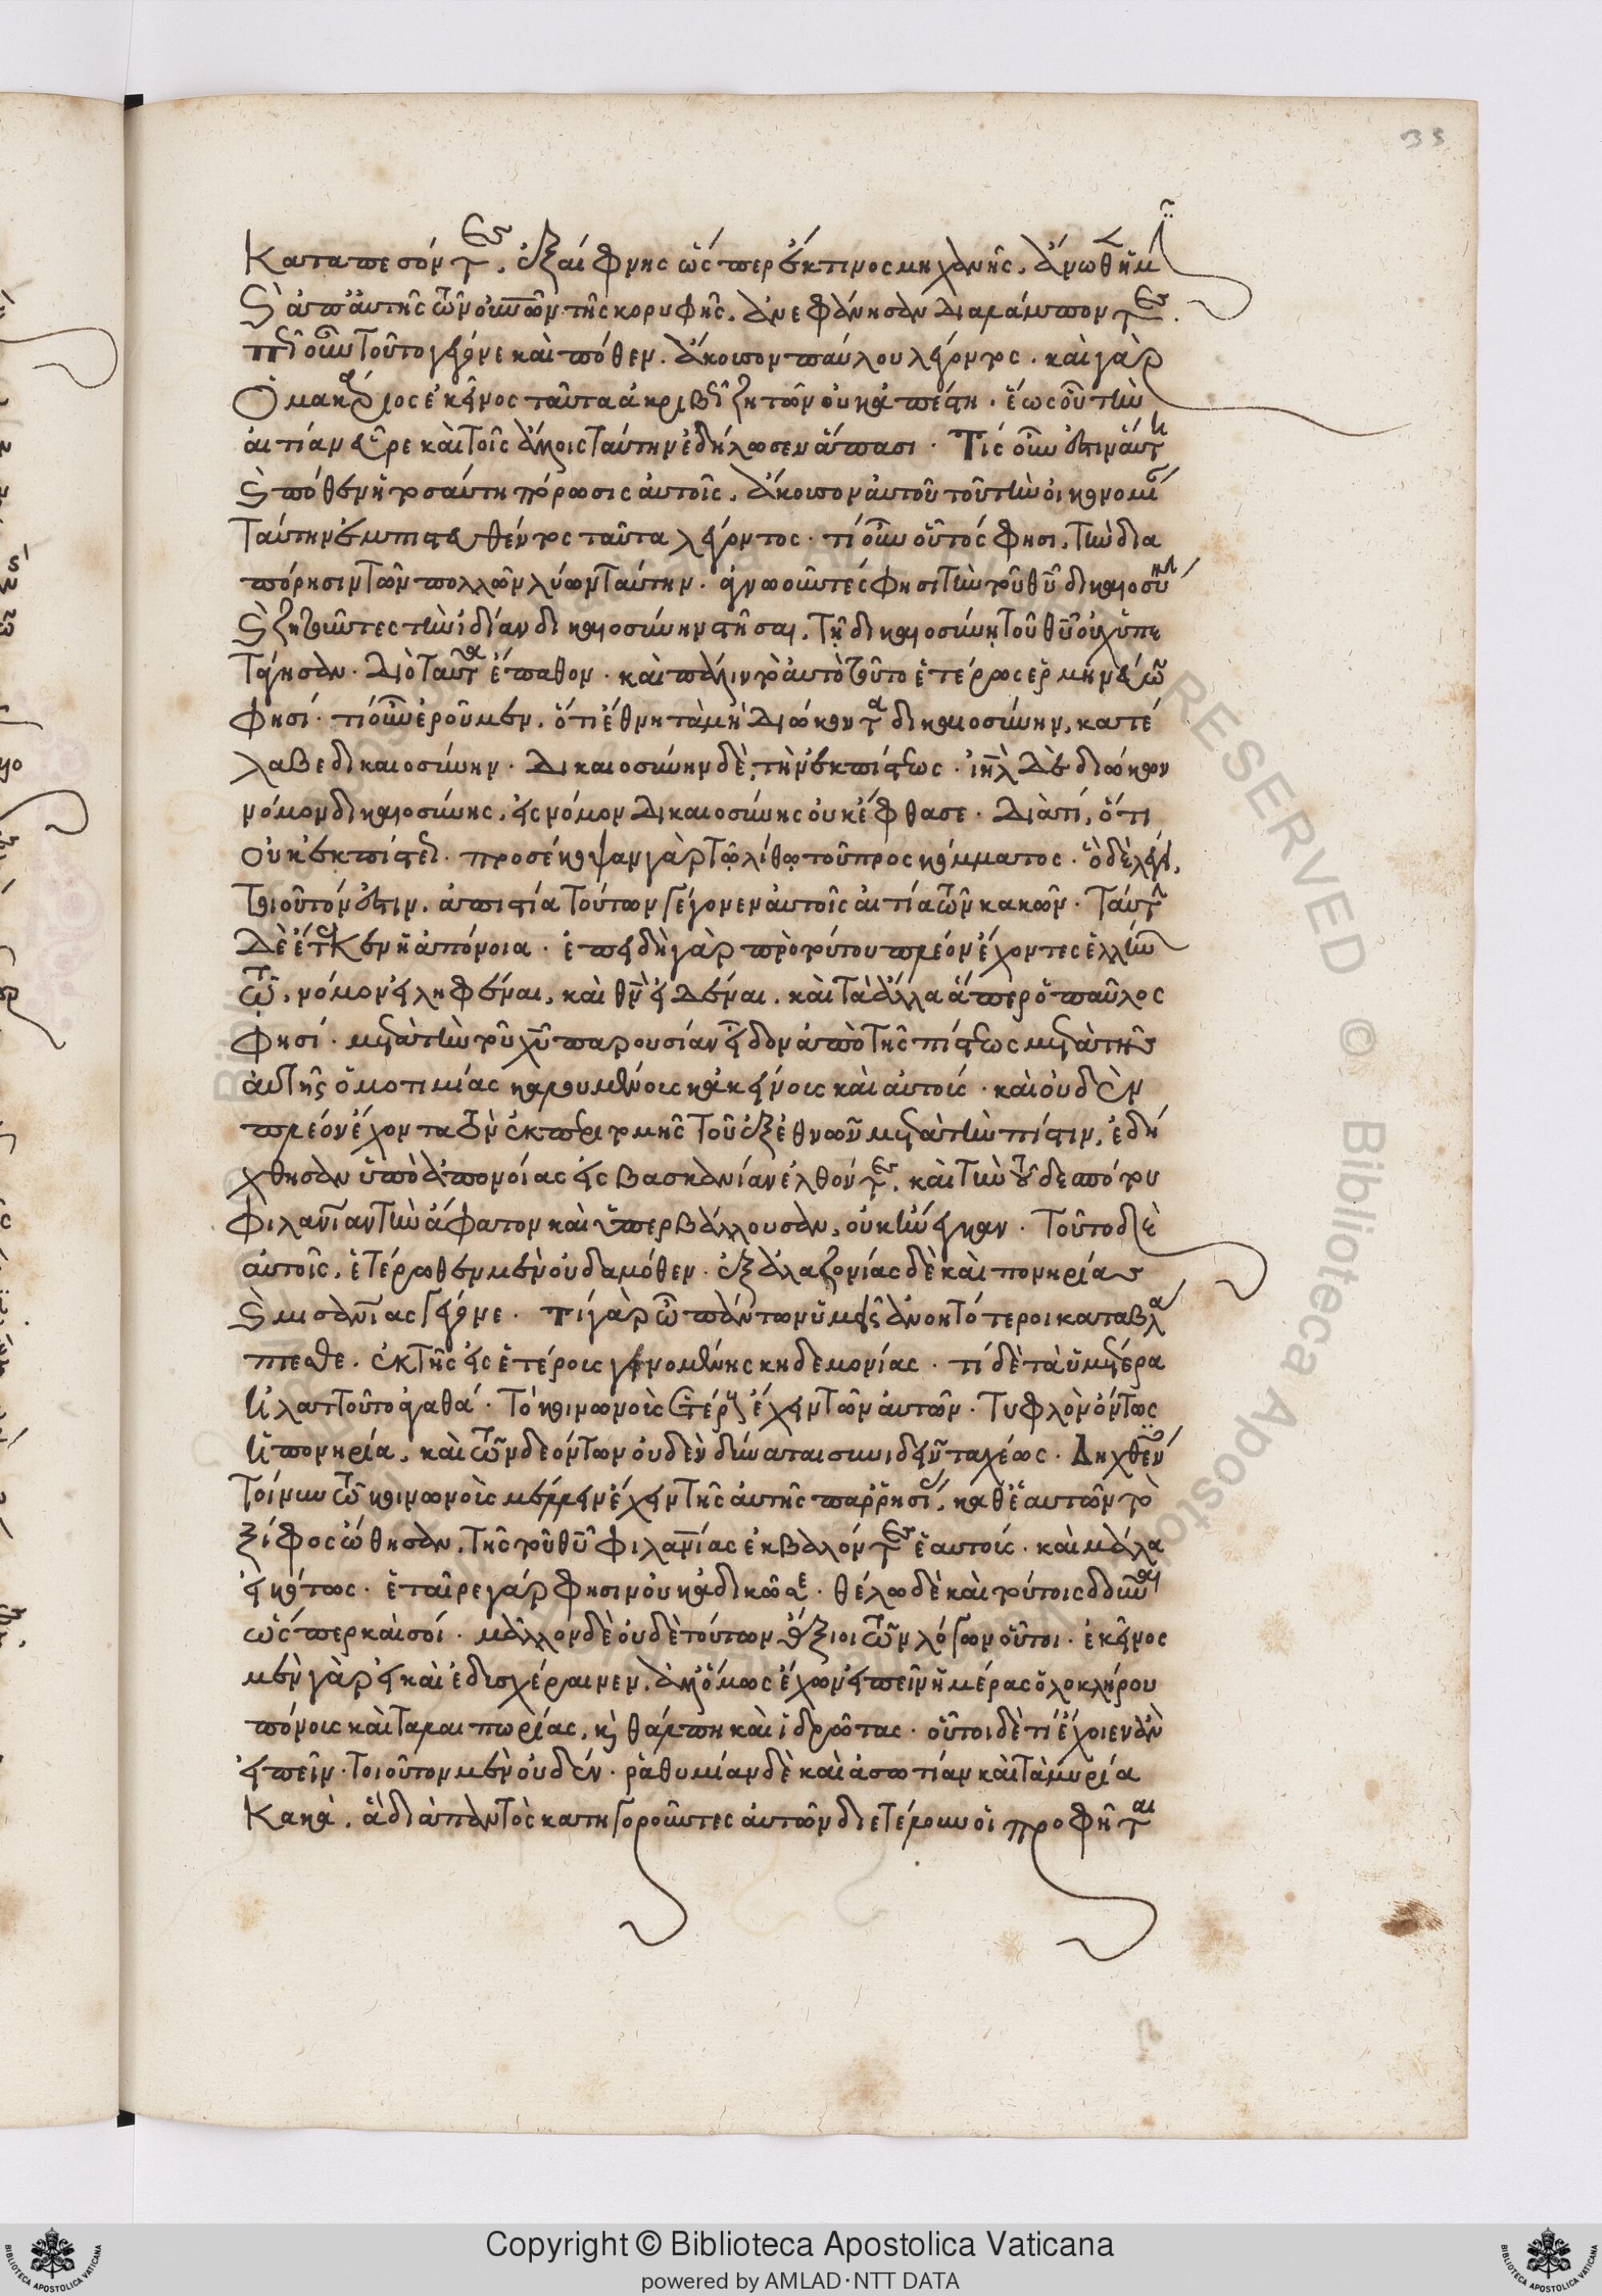 33
Καταπεσόντες, ἐξαίφνης ὥσπερ ἔκ τινος μηχανῆς, ἄνωθεν
καὶ ἀπ' αὐτῆς τῶν οὐρανῶν τῆς κορυφῆς, ἀνεφάνησαν διαλάμποντες.
πῶς οὖν τοῦτο γέγονε καὶ πόθεν. ἄκουσον παύλου λέγοντος. καὶ γὰρ
ὁ μακάριος ἐκεῖνος ταῦτα ἀκριβῶς ζητῶν οὐκ ἀπέστη. ἕως οὗ τὴν
αἰτίαν εὗρε καὶ τοῖς ἄλλοις ταύτην ἐδήλωσεν ἅπασι. Τίς οὖν ἐστιν αὕτη
καὶ πόθεν ἡ τοσαύτη πώρωσις αὐτοῖς, ἄκουσον αὐτοῦ τοῦ τὴν οἰκονομίαν
ταύτην ἐμπιστευθέντος ταῦτα λέγοντος. τί οὖν οὗτός φησι, τὴν δια
πόρησιν τῶν πολλῶν λύων ταύτην. ἀγνοοῦντές φησι τὴν τοῦ θυ δικαιοσύνην
καὶ ζητοῦντες τὴν ἰδίαν δικαιοσύνην στῆσαι, τῇ δικαιοσύνῃ τοῦ θυ οὐχ ὑπε
τάγησαν. Διὸ ταῦτα ἔπαθον. καὶ πάλιν τὸ αὐτὸ τοῦτο ἑτέρως ἑρμηνεύων
φησί. τί οὖν ἐροῦμεν. ὅτι ἔθνη τὰ μὴ διώκοντα δικαιοσύνην, κατέ
λαβε δικαιοσύνην. Δικαιοσύνην δὲ, τὴν ἐκ πίστεως. ιηλ δὲ διώκων
νόμον δικαιοσύνης, εἰς νόμον δικαιοσύνης οὐκ ἔφθασε. Διὰ τί, ὅτι
οὐκ ἐκ πίστεως. προσέκοψαν γὰρ τῷ λίθῳ τοῦ προσκόμματος. ὃ δὲ λέγει,
τοιοῦτόν ἐστιν. ἀπιστία τούτων γέγονεν αὐτοῖς αἰτία τῶν κακῶν. ταύτην
δὲ ἔτεκεν ἡ ἀπόνοια. ἐπειδὴ γὰρ πρὸ τούτου πλέον ἔχοντες ἑλλήνων
τῷ, νόμον εἰληφέναι, καὶ θν εἰδέναι, καὶ τὰ ἄλλα ἅπερ ὁ παῦλος
φησί. μετὰ τὴν τοῦ χυ παρουσίαν εἶδον ἀπὸ τῆς πίστεως μετὰ τῆς
αὐτῆς ὁμοτιμίας καλουμένους κἀκείνους καὶ αὐτούς. καὶ οὐδὲν
πλέον ἔχοντα τὸν ἐκ περιτομῆς τοῦ ἐξ ἐθνῶν μετὰ τὴν πίστιν, ἐδή
χθησαν ὑπὸ ἀπονοίας εἰς βασκανίαν ἐλθόντες, καὶ τὴν τοῦ δεσπότου
φιλανίαν τὴν ἄφατον καὶ ὑπερβάλλουσαν, οὐκ ἤνεγκαν. τοῦτο δὲ
αὐτοῖς, ἑτέρωθεν μὲν οὐδαμόθεν. ἐξ ἀλαζονίας δὲ καὶ πονηρίας
καὶ μισανίας γέγονε. τί γὰρ ὦ πάντων ὑμεῖς ἀνοητότεροι κατεβλά
πτεσθε. ἐκ τῆς εἰς ἑτέρους γενομένης κηδεμονίας. τί δὲ τὰ ὑμέτερα
ἠλάττου τὸ ἀγαθά. τὸ κοινωνοὺς ἑτέρους ἔχειν τῶν αὐτῶν. Τυφλὸν ὄντως
ἡ πονηρία, καὶ τῶν δεόντων οὐδὲν δύναται συνιδεῖν ταχέως. Δηχθέντες
τοίνυν τῷ κοινωνοὺς μέλλειν ἔχειν τῆς αὐτῆς παρρησίας, καθ' ἑαυτῶν τὸ
ξίφος ὤθησαν, τῆς τοῦ θυ φιλανίας ἐκβαλόντες ἑαυτούς. καὶ μάλα
εἰκότως. ἑταῖρε γάρ φησιν οὐκ ἀδικῶ σε. θέλω δὲ καὶ τούτοις δοῦναι
ὥσπερ καὶ σοί. μᾶλλον δὲ οὐδὲ τούτων ἄξιοι τῶν λόγων οὗτοι. ἐκεῖνος
μὲν γὰρ εἰ καὶ ἐδυσχέραινεν, ἀλλ' ὅμως ἔχων εἰπεῖν ἡμέρας ὁλοκλήρου
πόνους καὶ ταλαιπωρίας, καὶ θάλπη καὶ ἱδρῶτας. οὗτοι δὲ τί ἔχοιεν ἂν
εἰπεῖν. τοιοῦτον μὲν οὐδέν. ῥαθυμίαν δὲ καὶ ἀσωτίαν καὶ τὰ μυρία
κακά. ἃ διὰ παντὸς κατηγοροῦντες αὐτῶν διετέλουν οἱ προφῆται
Copyright © Biblioteca Apostolica Vaticana
powered by AMLAD·NTT DATA